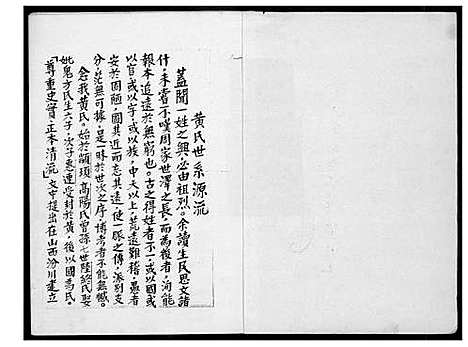 黄氏世系源流
蓋聞一姓之興，必由祖烈。余讀生民思文諸
什，未嘗不嘆周家世澤之長，而為後者，洵能
報本追遠於無窮也。古之得姓者不一，或以國或
以官或以字，或以族，中天以上，荒遠難稽，愚者
安於固陋，國其近而忘其遠，使一脈之傳，派別支
分，茫無可據，皇一時於世次之序，博考者不能無憾。
念我黃氏。始於顓頊高陽氏曾孫七世陸終氏娶
妣鬼方氏生六子，次子惠連受封於黃，後以國為氏。
「尊重史實，正本清流」文中提出在山西汾川建立